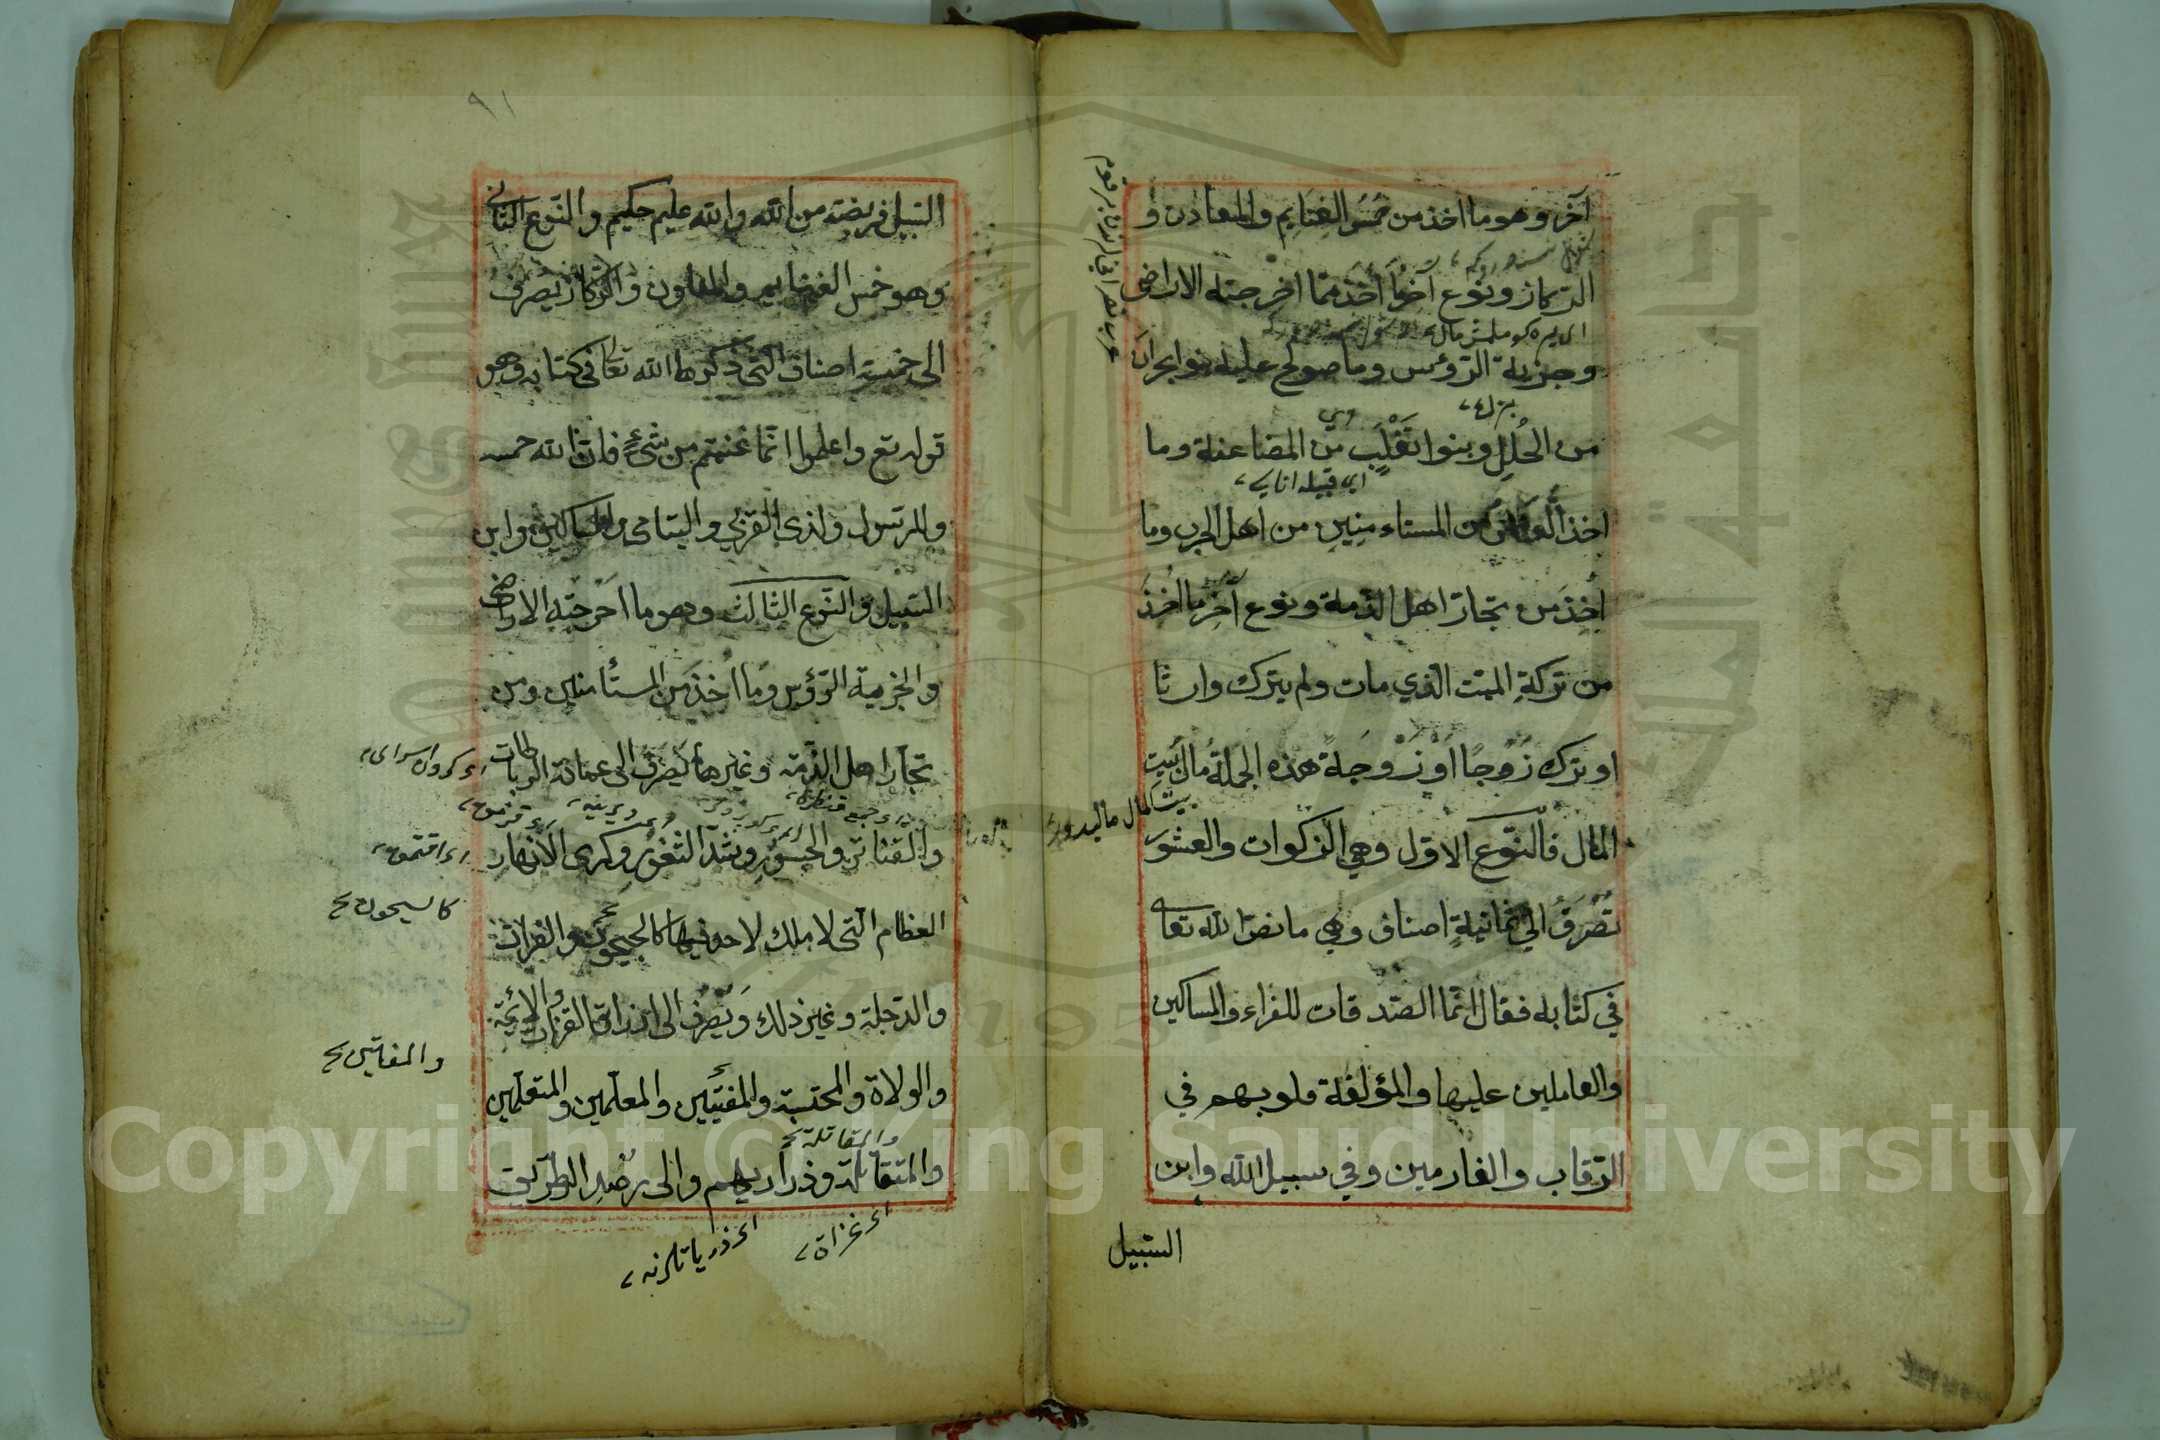 آخر وهو ما اخذ من خمس الغنايم والمعادن و
الركاز ونوع آخر ما أخذ مما اخرجته الاراضى
وجزية الرؤس وما صولح عليه بنوا نجران
من الحلل وبنوا تغلب من المضاعفة وما
اخذ العاشر من المستاءمنين من اهل الحرب وما
اخذ من تجار اهل الذمة ونوع آخر ما اخذ
من تركة الميت الذي مات ولم يترك وارثا
او ترك زوجا او زوجة هذه الجملة مال بيت
المال فالنوع الاول وهي الزكوات والعشور
تصرف الى ثمانية اصناف وهي ما نص الله تعالى
في كتابه فقال انما الصدقات للفقراء والمساكين
والعاملين عليها والمؤلفة قلوبهم في
الرقاب والغارمين وفي سبيل الله وابن
السبيل
٩١
السبيل فريضة من الله والله عليم حكيم والنوع الثانى
وهو خمس الغنايم والمعادن والركاز يصرف
الى خمسة اصناف التى ذكرها الله تعالى فى كتابه وهو
قوله تع واعلموا انما غنمتم من شئ فان لله خمسه
وللرسول ولذى القربي واليتامى والمساكين وابن
السبيل والنوع الثالث وهو ما اخرجته الاراضى
والجزية الرؤس وما اخذ من المستأمنين ومن
تجار اهل الذمة وغيرها يصرف الى عمارة الرباطات
والقناتر والجسور وسد الثغور وكرى الأنهار
العظام التى لا ملك لاحد فيها كالجيحون والفرات
والدجلة وغير ذلك ويصرف الى ارزاق القضاة والائمة
والولاة والمحتسبة والمفتيين والمعلمين والمتعلمين
والمتقاتلة وذراريهم والى رصد الطريق
والمقاتلة
كالسيحون
والمفاتين
اى غزاة
اى ذرياتلرنه
Copyright © King Saud University
1957